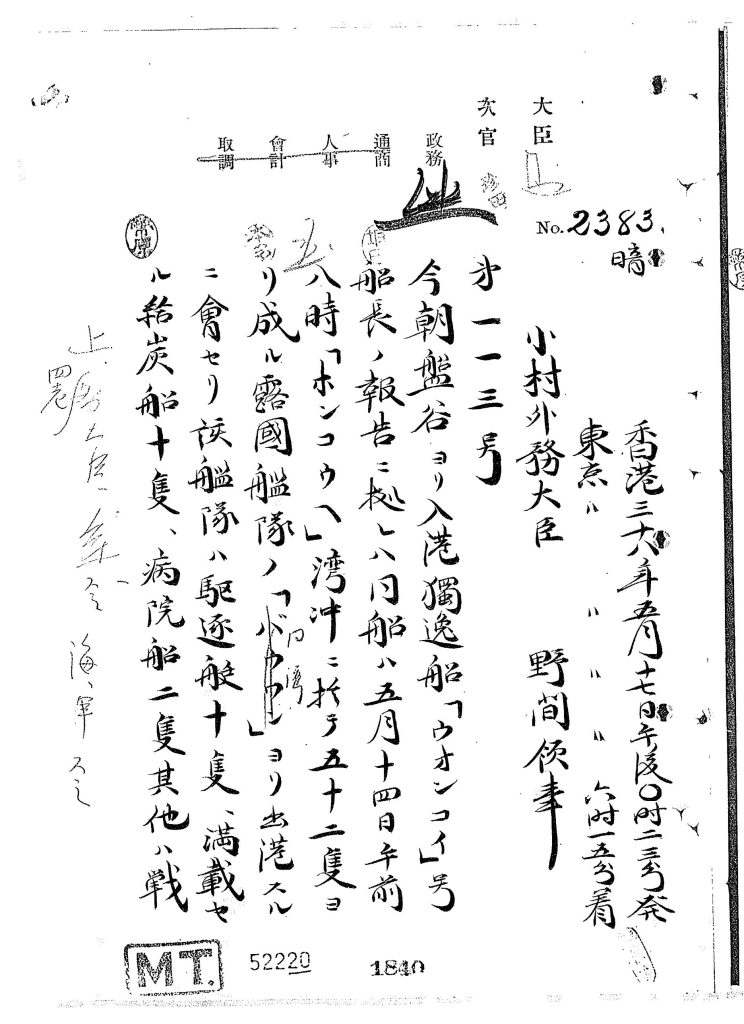 大臣
次官
政務
通商
人事
會計
取調
No. 2383.
暗
香港三十八年五月十七日午後〇时二三分発
東京 〃 〃 〃 〃 六时一五分着
小村外務大臣 野間领事
第一一三号
今朝盤谷ヨリ入港獨逸船「ウオンコイ」号
船長ノ報告ニ拠レハ同船ハ五月十四日午前
八時「ホンコウヘ」湾沖ニ於テ五十二隻ヨ
リ成ル露國艦隊ノ同湾ヨリ出港スル
ニ會セリ該艦隊ハ駆逐艇十隻、満載セ
ル給炭船十隻、病院船二隻其他ハ戦
海軍
MT.
52220
1840